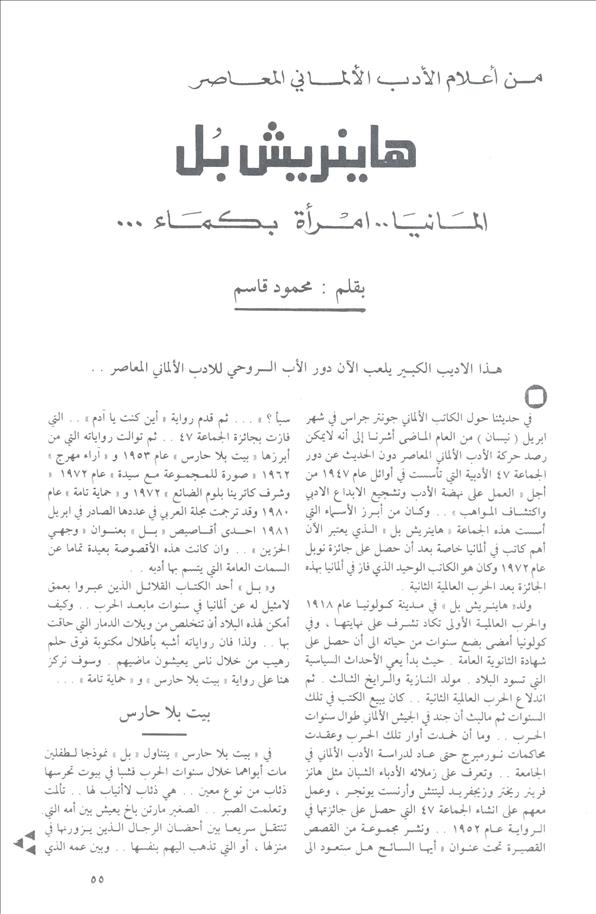 من أعلام الأدب الألماني المعاصر
هاينريش بُل
المانيا.. امرأة بكماء ...
بقلم : محمود قاسم
هذا الاديب الكبير يلعب الآن دور الأب الروحي للادب الألماني المعاصر . .
في حديثنا حول الكاتب الألماني جونتر جراس في شهر
ابريل ( نيسان ) من العام الماضى أشرنا إلى أنه لايمكن
رصد حركة الأدب الألماني المعاصر دون الحديث عن دور
الجماعة ٤٧ الأدبية التي تأسست في أوائل عام ١٩٤٧ من
أجل « العمل على نهضة الأدب وتشجيع الابداع الادبي
واكتشاف المواهب » . . وكان من أبرز الأسماء التي
أسست هذه الجماعة « هاينريش بل » الذي يعتبر الآن
أهم كاتب في ألمانيا خاصة بعد أن حصل على جائزة نوبل
عام ١٩٧٢ وكان هو الكاتب الوحيد الذي فاز في ألمانيا بهذه
الجائزة بعد الحرب العالمية الثانية .
ولد« هاينريش بل » في مدينة كولونيا عام ١٩١٨
والحرب العالمية الأولى تكاد تشرف على نهايتها ، وفي
كولونيا أمضى بضع سنوات من حياته الى أن حصل على
شهادة الثانوية العامة . حيث بدأ يعي الأحداث السياسية
التي تسود البلاد . مولد النازية والرايخ الثالث . ثم
اندلاع الحرب العالمية الثانية . . كان يبيع الكتب في تلك
السنوات ثم مالبث أن جند في الجيش الألماني طوال سنوات
الحرب . . وما أن خمدت أوار تلك الحرب وعقدت
محاكمات نورمبرج حتى عاد لدراسة الأدب الألماني في
الجامعة . . وتعرف على زملائه الأدباء الشبان مثل هانز
فرينر ريختر وزيجفريد لينتش وأرنست يونجر ، وعمل
معهم على انشاء الجماعة ٤٧ التي حصل على جائزتها في
الرواية عام ١٩٥٢ . . ونشر مجموعة من القصص
القصيرة تحت عنوان « أيها السائح هل ستعود الى
سبأ ؟ » ... ثم قدم رواية « أين كنت يا آدم » . . التي
فازت بجائزة الجماعة ٤٧ . . ثم توالت رواياته التي من
أبرزها « بيت بلا حارس » عام ١٩٥٣ و « آراء مهرج »
١٩٦٢ « صورة للمجموعة مع سيدة » عام ١٩٧٢ «
وشرف كاترينا بلوم الضائع » ١٩٧٢ و « حماية تامة » عام
١٩٨٠ وقد ترجمت مجلة العربي في عددها الصادر في ابريل
١٩٨١ احدى أقاصيص « بل » بعنوان « وجهي
الحزين » . . وان كانت هذه الأقصوصة بعيدة تماما عن
السمات العامة التي يتسم بها أدبه . .
و« بل » أحد الكتاب القلائل الذين عبروا بعمق
لامثيل له عن ألمانيا في سنوات مابعد الحرب . . وكيف
أمكن لهذه البلاد أن تتخلص من ويلات الدمار التي حاقت
بها . . ولذا فان رواياته أشبه بأطلال مكتوبة فوق حلم
رهيب من خلال ناس يعيشون ماضيهم . وسوف نركز
هنا على رواية « بيت بلا حارس » و « حماية تامة » ...
بيت بلا حارس
في « بيت بلا حارس » يتناول « بل » نموذجا لطفلين
مات أبواهما خلال سنوات الحرب فشبا في بيوت تحرسها
ذئاب من نوع معين . . هي ذئاب لاأنياب لها . . تألمت
وتعلمت الصبر . . الصغير مارتن باخ يعيش بين أمه التي
تنتقل سريعا بين أحضان الرجال الذين يزورنها في
منزلها ، أو التي تذهب اليهم بنفسها . . وبين عمه الذي
٥٥